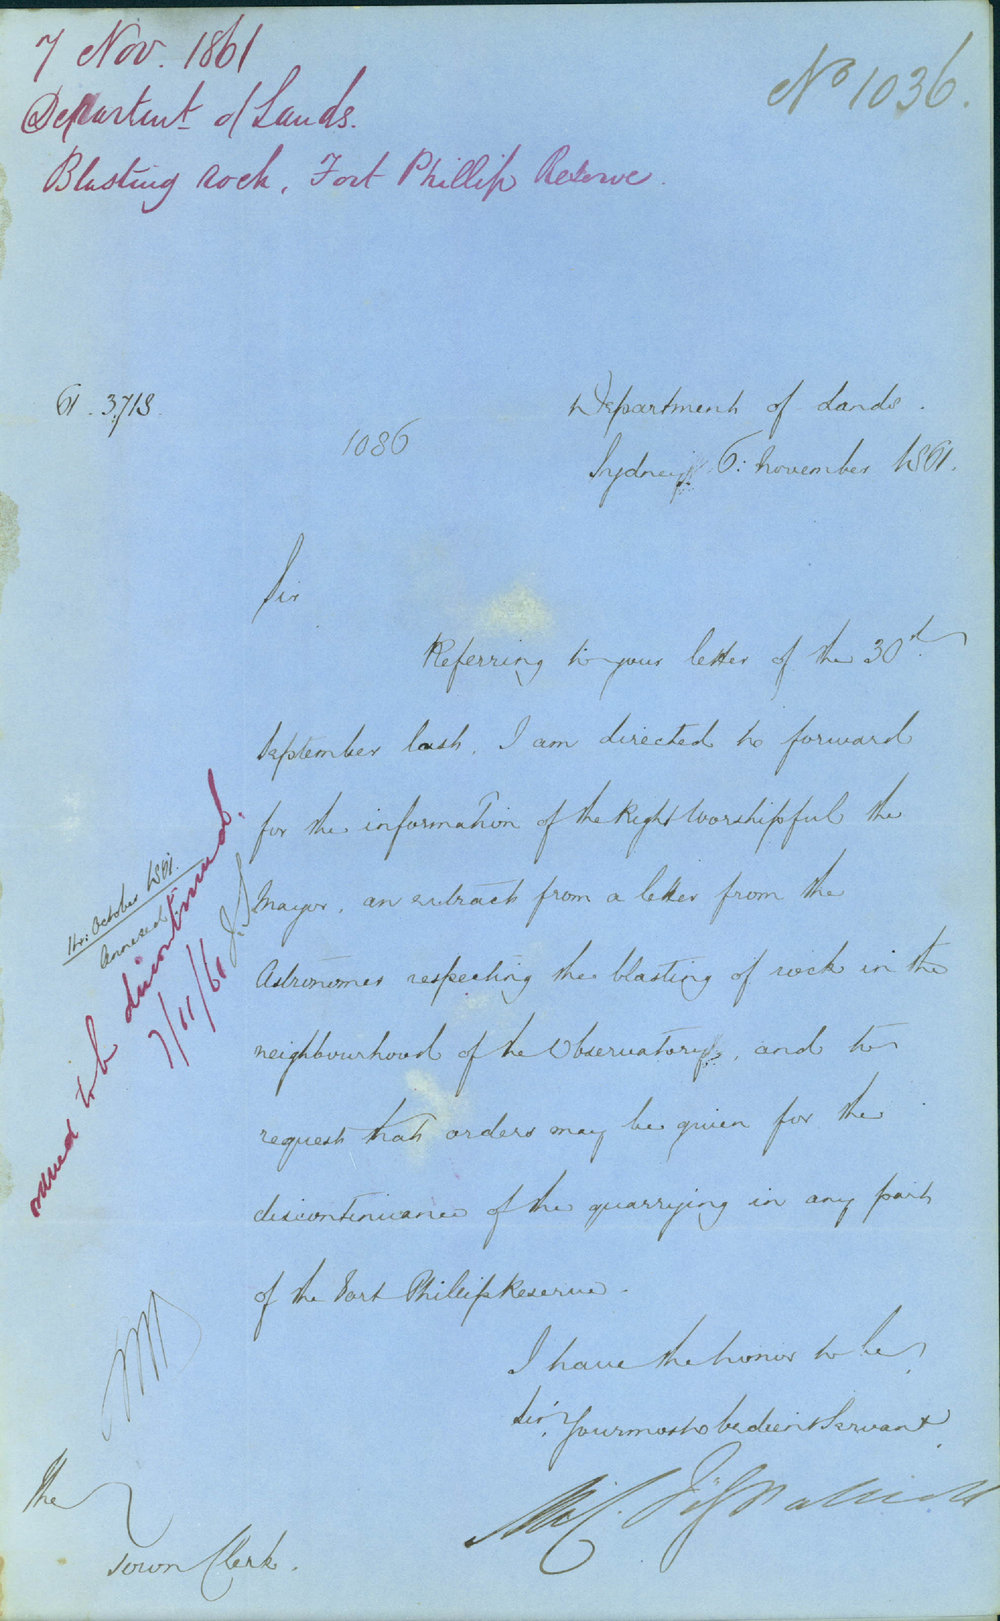 7 Nov. 1861
No 1036.
Departmt of Lands.
Blasting rock, Fort Phillip Reserve.
61. 3,718.
Department of Lands.
1086
Sydney 6: November 1861.
Sir
Referring to your letter of the 30th
September last, I am directed to forward
for the information of the Right Worshipful the
Mayor, an extract from a letter from the
Astronomer respecting the blasting of rock in the
neighbourhood of the Observatory, and to
request that orders may be given for the
discontinuance of the quarrying in any part
of the Fort Phillip Reserve.
October 1861.
Annexed
to be discontinued.
7/11/61
I have the honor to be,
Sir,
Your most obedient Servant
Mich. Fitzpatrick
The
Town Clerk.